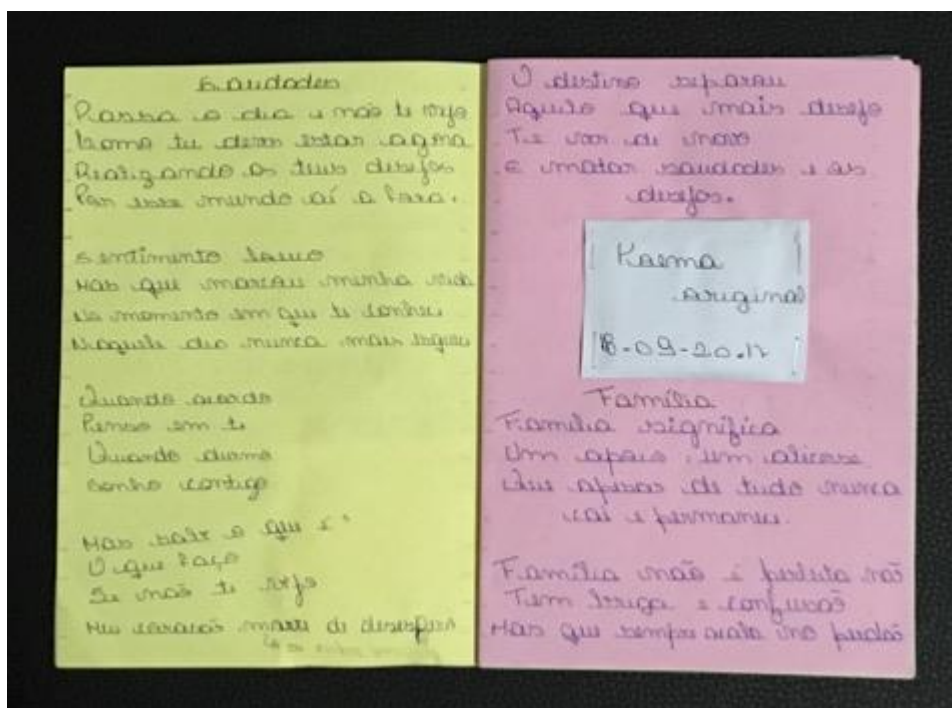 Saudades
Passa o dia e não te vejo
Como tu deves estar agora
Realizando os teus desejos
Por esse mundo aí a fora.
Sentimento louco
Mas que marcou minha vida
No momento em que te conheci
Naquele dia nunca mais
Quando acordo
Penso em ti
Quando durmo
Sonho contigo
Mas sabe o que é
O que faço
Se não te vejo
Meu coração morre de desespero
O destino separou
Aquilo que mais desejo
Te ver de novo
E matar saudades e os
desejos.
Poema
original
-09-20.17
Família
Família significa
Um apoio, um alicerce
Que apesar de tudo nunca
cai e permanece.
Família não é perfeita não
Tem briga e confusão
Mas que sempre acaba no perdão